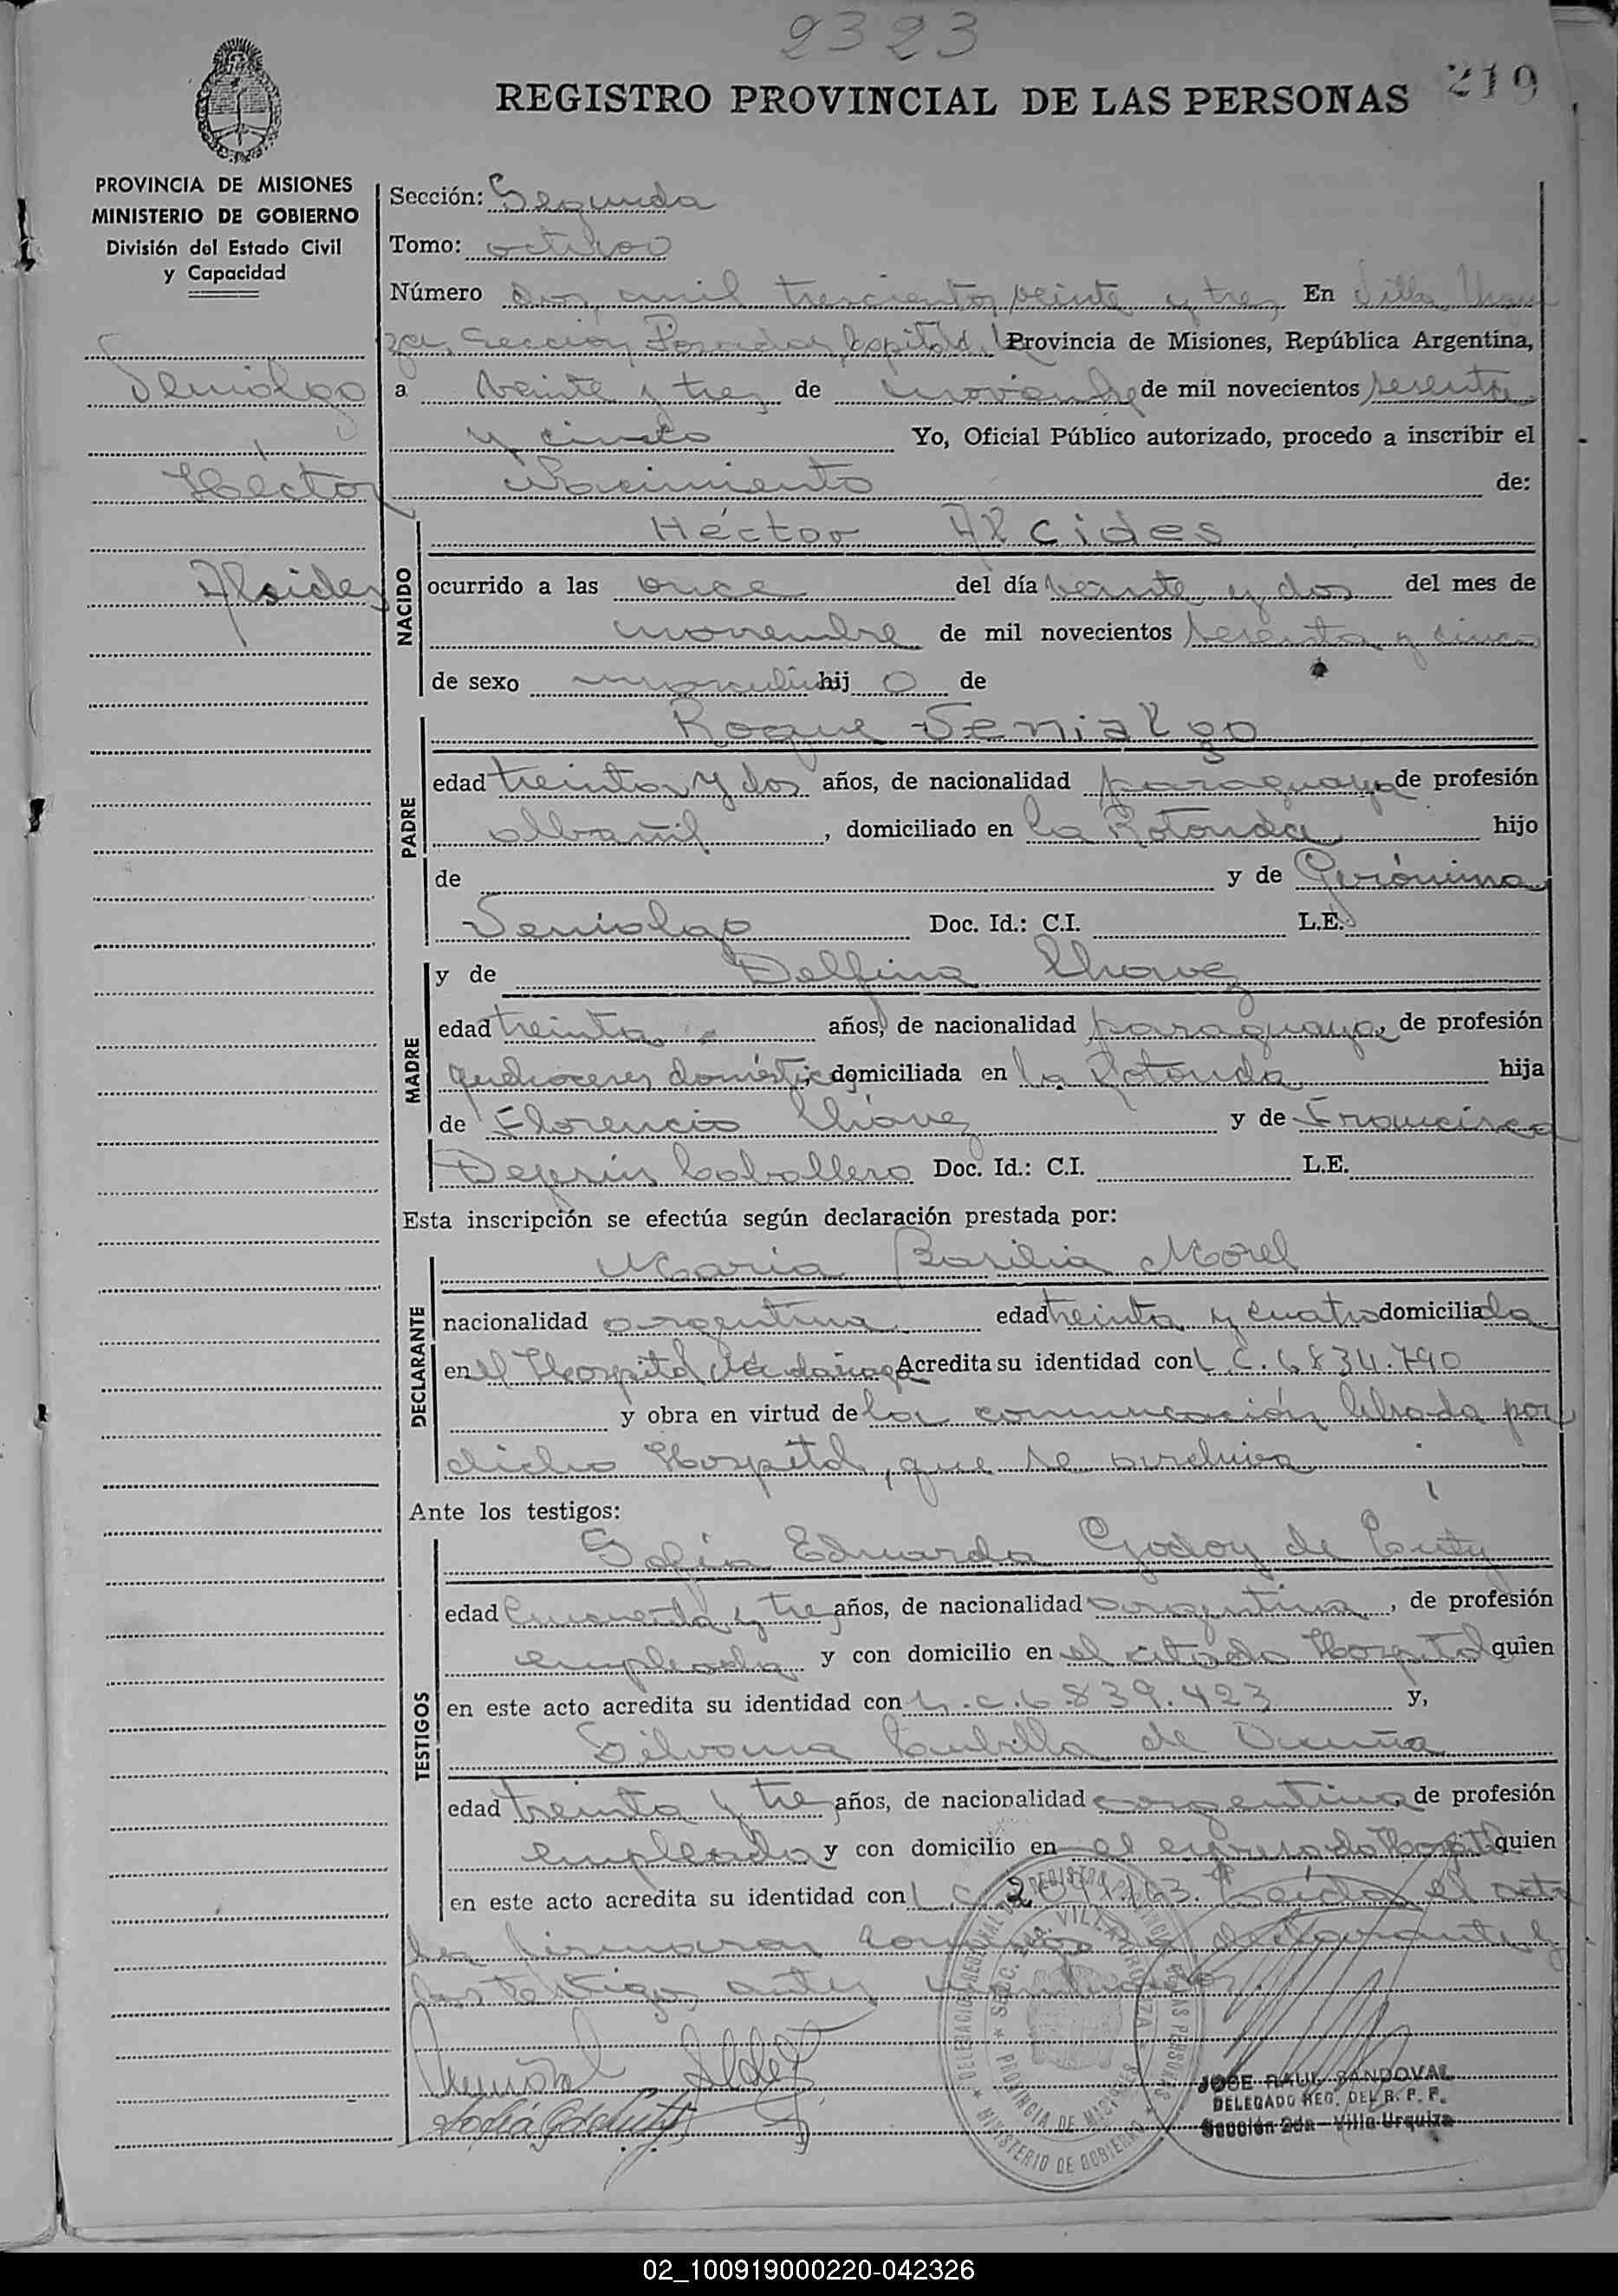 2323
219
REGISTRO PROVINCIAL DE LAS PERSONAS
PROVINCIA DE MISIONES
MINISTERIO DE GOBIERNO
División del Estado Civil
y Capacidad
Senialgo
Héctor
Alsides
Sección: Segunda
Tomo: octavo
Número dos mil trescientos veinte y tres En Villa Urqui
za, Sección Posadas, Capital de la Provincia de Misiones, República Argentina,
a veinte y tres de noviembre de mil novecientos sesenta
y cinco Yo, Oficial Público autorizado, procedo a inscribir el
Nacimiento de:
NACIDO
Héctor Alcides
ocurrido a las once del día veinte y dos del mes de
noviembre de mil novecientos sesenta y cinco
de sexo masculino hij o de
PADRE
Roque Senialgo
edad treinta y dos años, de nacionalidad paraguaya de profesión
albañil, domiciliado en la Rotonda hijo
de y de Gerónima
Senialgo Doc. Id.: C.I. L.E.
MADRE
y de Delfina Chavez
edad treinta años, de nacionalidad paraguaya, de profesión
quehaceres domésticos domiciliada en la Rotonda hija
de Florencio Chávez y de Francisca
Caballero Doc. Id.: C.I. L.E.
Esta inscripción se efectúa según declaración prestada por:
DECLARANTE
María Basilia Morel
nacionalidad argentina edad treinta y cuatro domiciliada
en el Hospital Madariaga Acredita su identidad con L.C. 6834.790
y obra en virtud de la comunicación librada por
dicho Hospital, que se archiva
Ante los testigos:
TESTIGOS
Sofía Eduarda Godoy de
edad cincuenta y tres años, de nacionalidad argentina, de profesión
empleada y con domicilio en el citado Hospital quien
en este acto acredita su identidad con L.C. 6839.423 y,
Silvana Cubilla de Acuña
edad treinta y tres años, de nacionalidad argentina de profesión
empleada y con domicilio en el expresado Hospital quien
en este acto acredita su identidad con L.C. Leída el acta
la firmaron conmigo la declarante y
los testigos antes mencionados.
DELEGACION REGIONAL DEL REGISTRO PROVINCIAL DE LAS PERSONAS
SECC. 2da. VILLA URQUIZA
PROVINCIA DE MISIONES
MINISTERIO DE GOBIERNO
JOSE RAUL SANDOVAL
DELEGADO REG. DEL R. P. P.
Sección 2da - Villa Urquiza
02_100919000220-042326